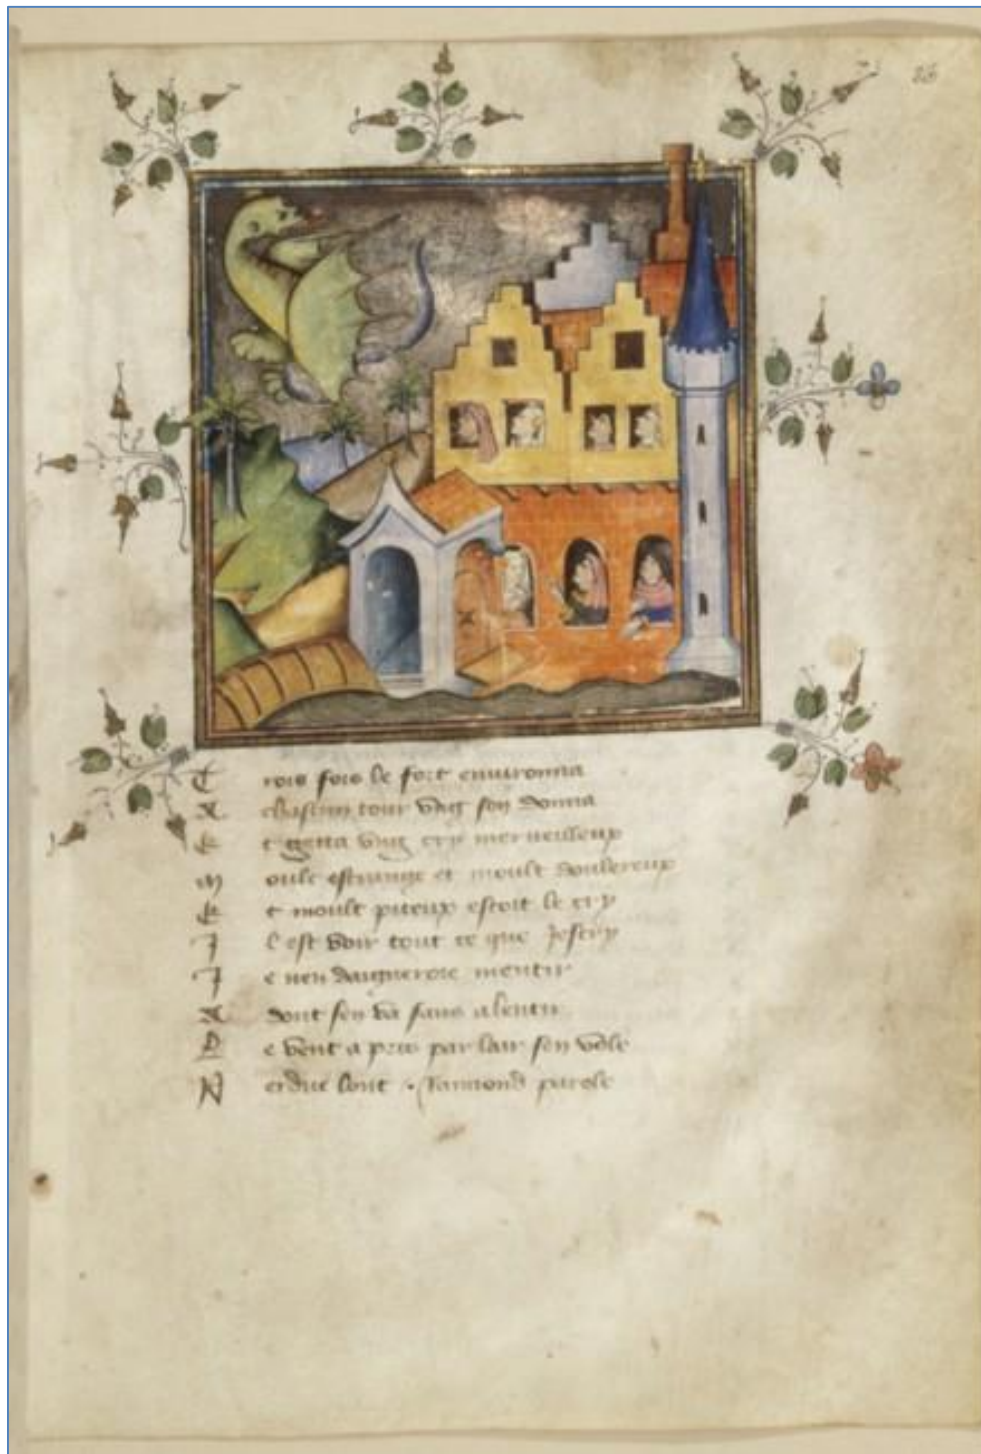 T rois fois le fort environna
A chascun tour ung son donna
E t getta ung cry merveilleux
M oult estrange et moult doulereux
E t moult piteux estoit le cry
I l est voir tout ce que jescry
J e nen daigneroie mentir
A dont sen va sans alentir
L e vent a pris par lair sen vole
P erdue lont Raimond parole